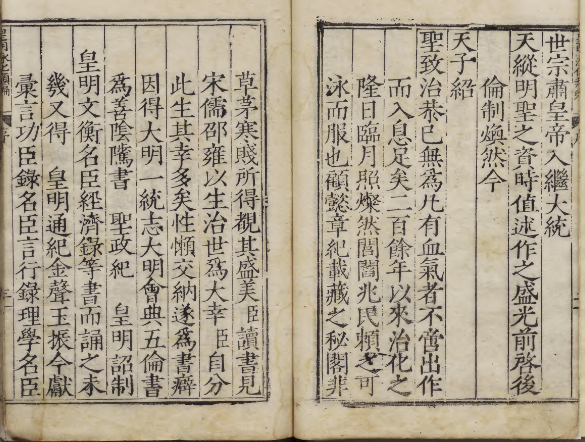 世宗肅皇帝入繼大統
天縱明聖之資時值述作之盛光前啓後
倫制煥然今
天子紹
聖致治恭己無爲凡有血氣者不啻出作
而入息足矣二百餘年以來治化之
隆日臨月照燦然閭閻兆民賴之可
泳而服也顧懿章紀載藏之秘閣非
草茅寒賤所得覩其盛美臣讀書見
宋儒邵雍以生治世爲大幸臣自分
此生其幸多矣性懶交納遂爲書癖
因得大明一統志大明會典五倫書
爲善陰騭書 聖政紀 皇明詔制
皇明文衡名臣經濟錄等書而誦之未
幾又得 皇明通紀金聲玉振今獻
彙言功臣錄名臣言行錄理學名臣